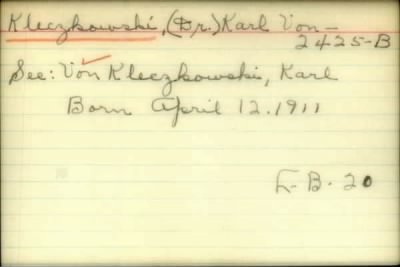 Kleczkowski, (Dr.) Karl Von-
2425-B
See: Von Kleczkowski, Karl
Born April 12.1911
L-B-20